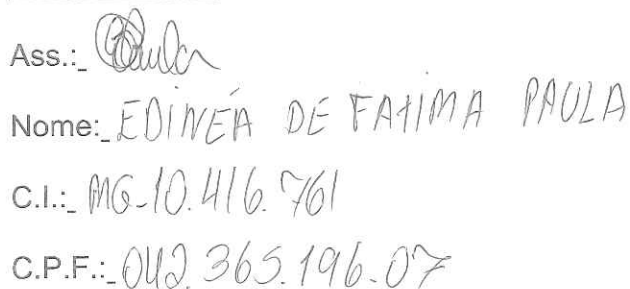 Ass.:_ Paula
Nome:_EDINÉA DE FATIMA PAULA
C.I.:_ MG-10.416.761
C.P.F.:_042.365.196-07